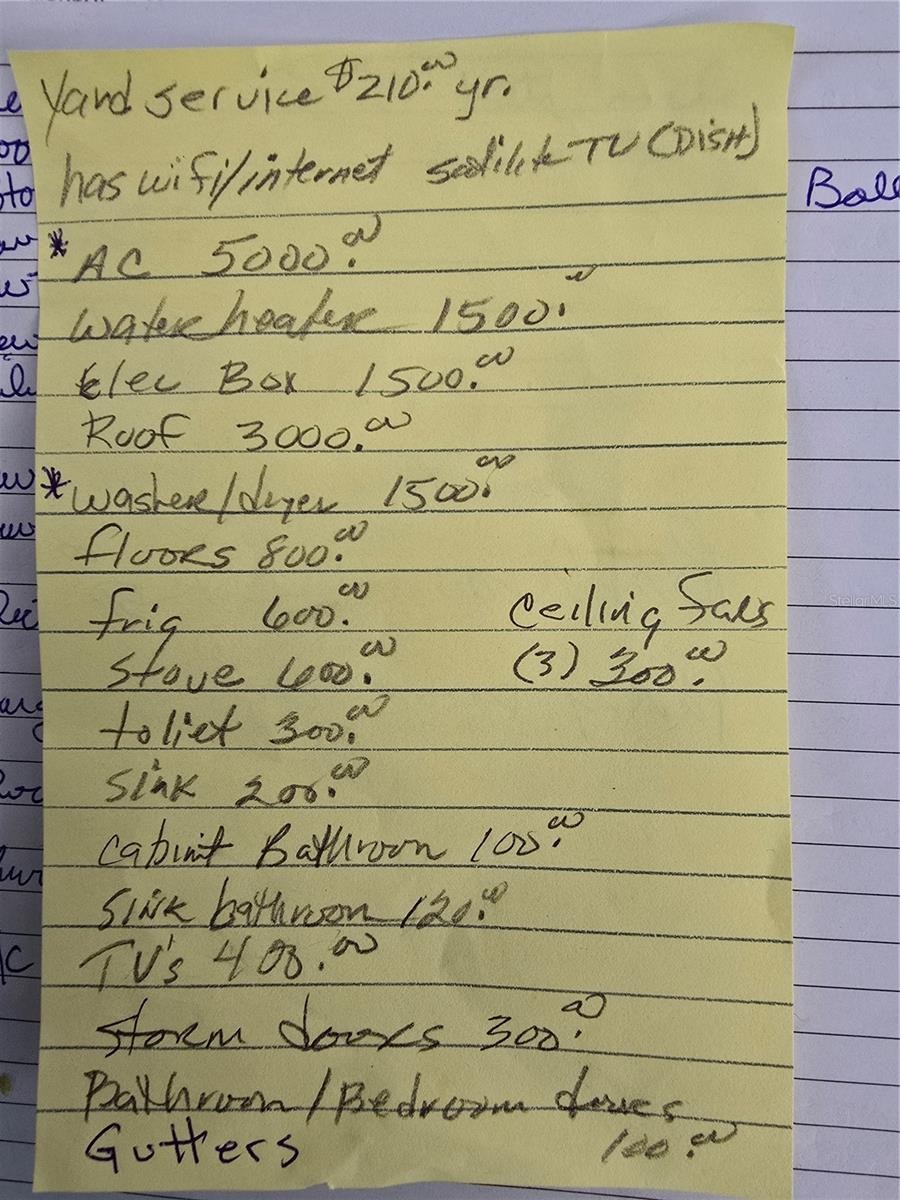 Yard service $210.00 yr.
has wifi/internet satilite TV (DISH)
* AC 5000.00
water heater 1500.00
Elec Box 1500.00
Roof 3000.00
* washer/dryer 1500.00
floors 800.00
frig 600.00
Ceiling fans
Stove 600.00
(3) 300.00
toliet 300.00
Sink 200.00
Cabinit Bathroom 100.00
Sink bathroom 120.00
TV's 400.00
Storm doors 300.00
Bathroom/Bedroom doors
Gutters 100.00
StellarMLS